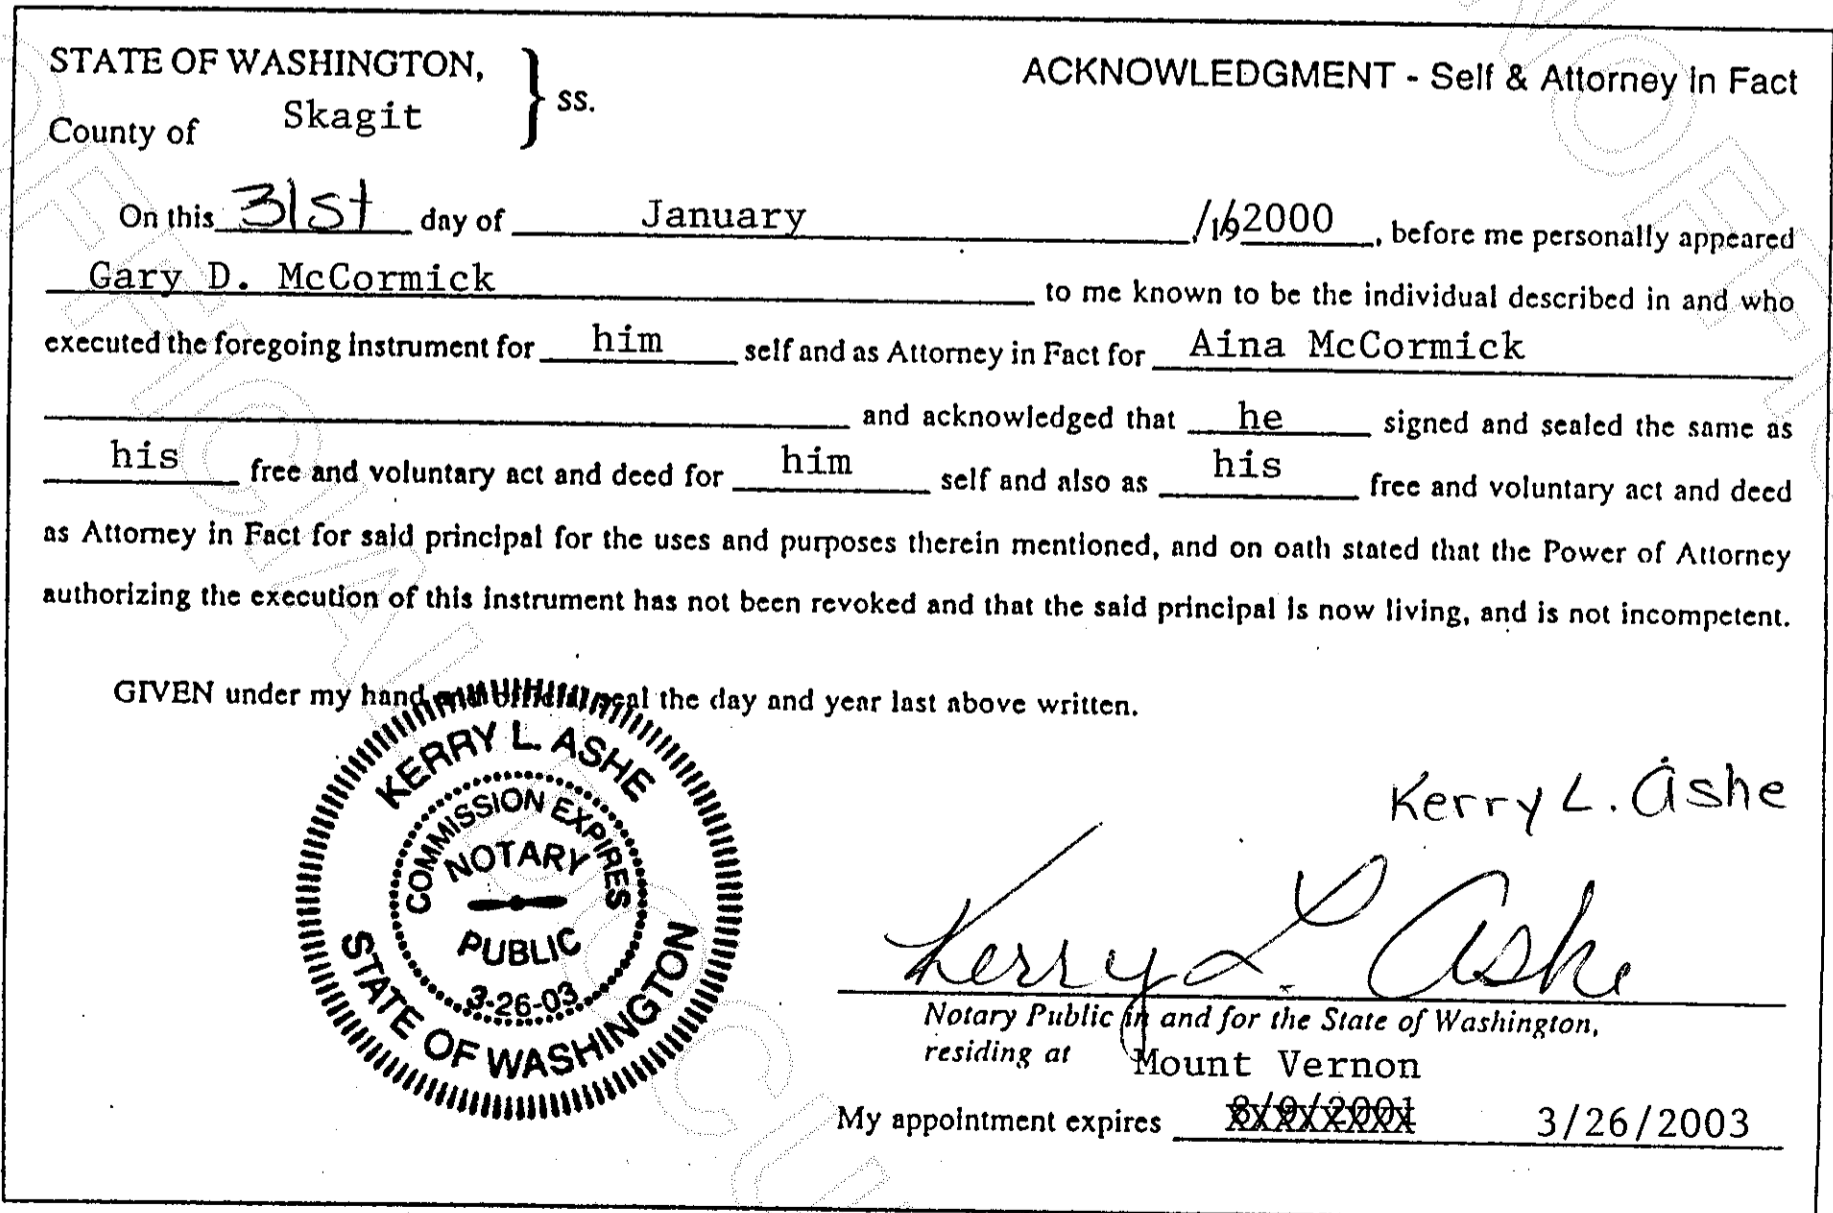 STATE OF WASHINGTON,
County of Skagit } ss.
ACKNOWLEDGMENT - Self & Attorney in Fact
On this 31st day of January /19 2000, before me personally appeared
Gary D. McCormick to me known to be the individual described in and who
executed the foregoing instrument for him self and as Attorney in Fact for Aina McCormick
and acknowledged that he signed and sealed the same as
his free and voluntary act and deed for him self and also as his free and voluntary act and deed
as Attorney in Fact for said principal for the uses and purposes therein mentioned, and on oath stated that the Power of Attorney
authorizing the execution of this instrument has not been revoked and that the said principal is now living, and is not incompetent.
GIVEN under my hand and official seal the day and year last above written.
KERRY L. ASHE
COMMISSION EXPIRES
NOTARY
PUBLIC
3-26-03
STATE OF WASHINGTON
Kerry L. Ashe
Kerry L. Ashe
Notary Public in and for the State of Washington,
residing at Mount Vernon
My appointment expires 3/26/2003